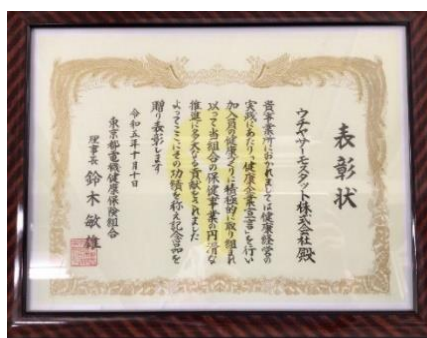 表彰状
ウチヤサーモスタット株式会社殿
貴事業所におかれましては健康経営の
実践にあたり「健康企業宣言」を行い
加入員の健康づくりに積極的に取り組まれ
以って当組合の保健事業の円滑な
推進に多大なる貢献をされました
よってここにその功績を称え記念品を
贈り表彰します
令和五年十月十日
東京都電機健康保険組合
理事長 鈴木敏雄